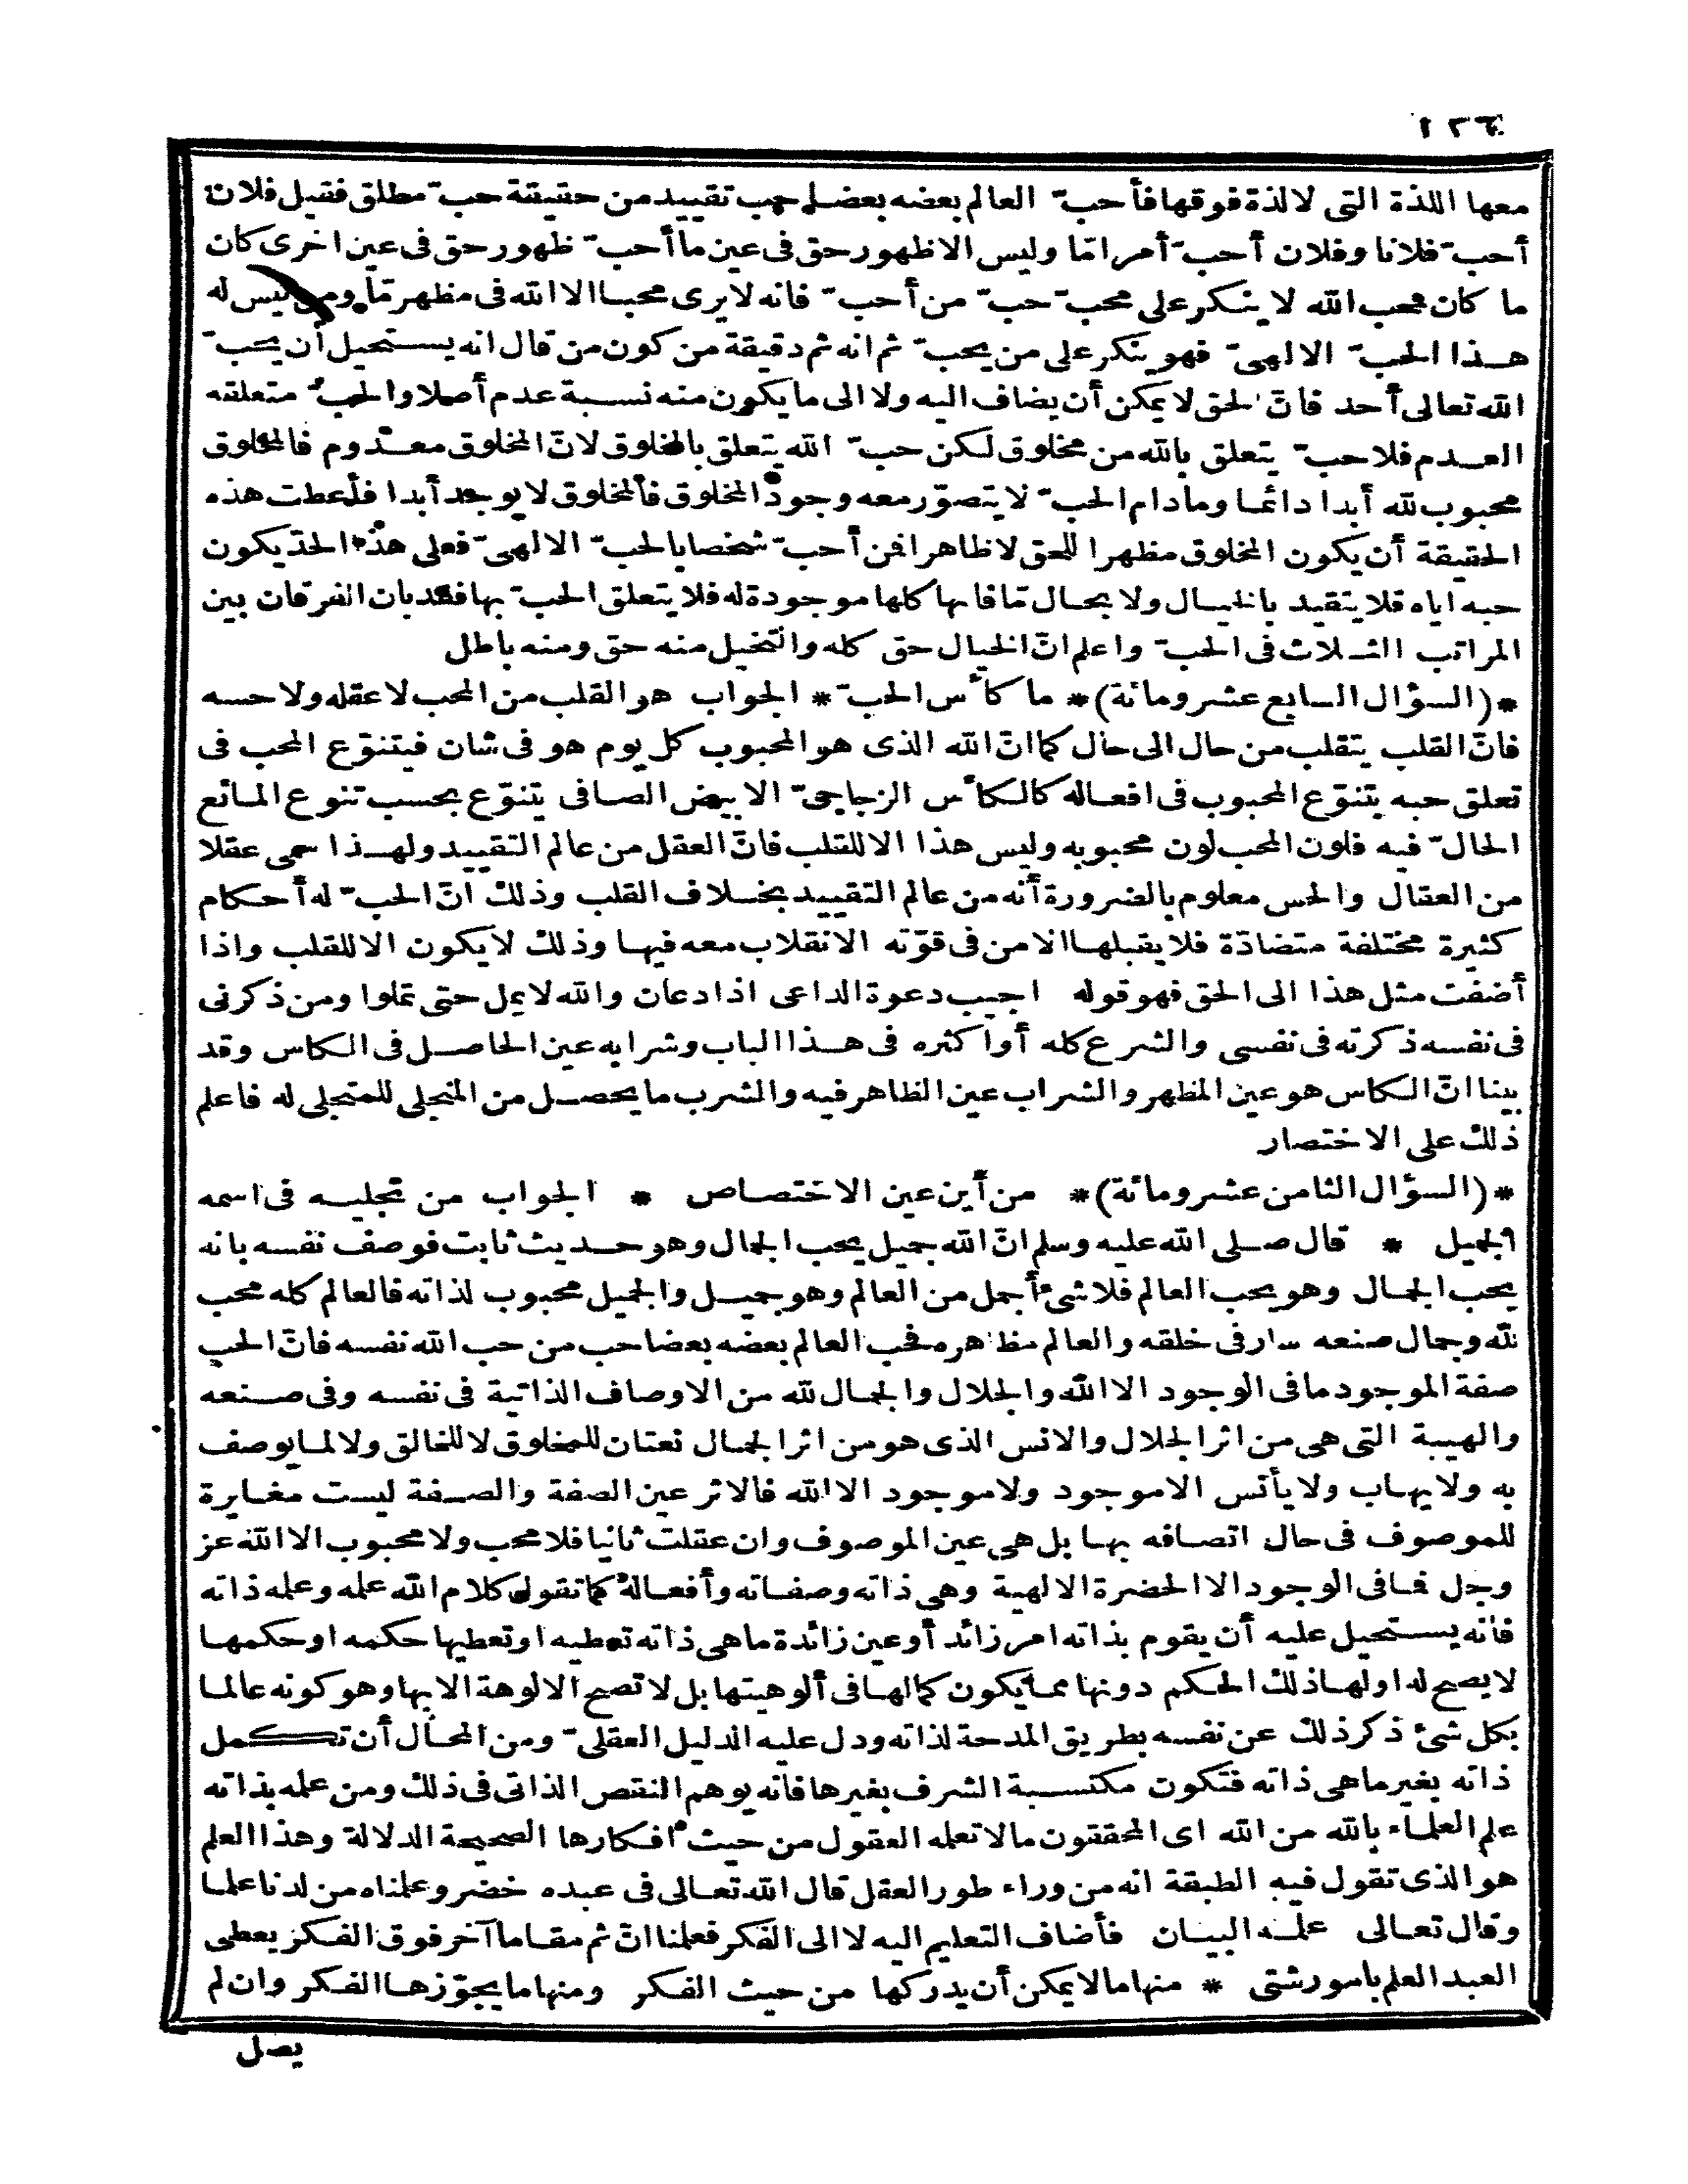 ١٢٦
معها اللذة التى لا لذة فوقها فأحبّ العالم بعضه بعضا حب تقييد من حقيقة حبّ مطلق فقيل فلان
أحبّ فلانا وفلان أحبّ أمرا مّا وليس الا ظهور حق فى عين ما أحبّ ظهور حق فى عين اخرى كان
ما كان فمحب الله لا ينكر على محبّ حبّ من أحبّ فانه لا يرى محبا الا الله فى مظهر مّا ومن ليس له
هذا الحبّ الالهىّ فهو ينكر على من يحبّ ثم انه ثم دقيقة من كون من قال انه يستحيل أن يحبّ
الله تعالى أحد فانّ الحق لا يمكن أن يضاف اليه ولا الى ما يكون منه نسبة عدم أصلا والحبّ متعلقه
العدم فلا حبّ يتعلق بالله من مخلوق لكن حبّ الله يتعلق بالمخلوق لانّ المخلوق معدوم فالمخلوق
محبوب لله أبدا دائما وما دام الحبّ لا يتصوّر معه وجود المخلوق فالمخلوق لا يوجد أبدا فأعطت هذه
الحقيقة أن يكون المخلوق مظهرا للحق لا ظاهرا فمن أحبّ شخصا بالحبّ الالهىّ فعلى هذا الحدّ يكون
حبه اياه فلا يتقيد بالخيال ولا بجمال مّا فانها كلها موجودة له فلا يتعلق الحبّ بها فقد بان الفرقان بين
المراتب الثلاث فى الحبّ واعلم انّ الخيال حق كله والتخيل منه حق ومنه باطل
*(السؤال السابع عشر ومائة)* ما كأس الحبّ * الجواب هو القلب من المحب لا عقله ولا حسه
فانّ القلب يتقلب من حال الى حال كما انّ الله الذى هو المحبوب كل يوم هو فى شان فيتنوّع المحب فى
تعلق حبه بتنوّع المحبوب فى افعاله كالكأس الزجاجىّ الابيض الصافى يتنوّع بحسب تنوع المائع
الحالّ فيه فلون المحب لون محبوبه وليس هذا الا للقلب فانّ العقل من عالم التقييد ولهذا سمى عقلا
من العقال والحس معلوم بالضرورة أنه من عالم التقييد بخلاف القلب وذلك انّ الحبّ له أحكام
كثيرة مختلفة متضادّة فلا يقبلها الا من فى قوّته الانقلاب معه فيها وذلك لا يكون الا للقلب واذا
أضفت مثل هذا الى الحق فهو قوله اجيب دعوة الداعى اذا دعان والله لا يمل حتى تملوا ومن ذكرنى
فى نفسه ذكرته فى نفسى والشرع كله أو اكثره فى هذا الباب وشرابه عين الحاصل فى الكاس وقد
بينا انّ الكاس هو عين المظهر والشراب عين الظاهر فيه والشرب ما يحصل من المتجلى للمتجلى له فاعلم
ذلك على الاختصار
*(السؤال الثامن عشر ومائة)* من أين عين الاختصاص * الجواب من تجليه فى اسمه
الجميل * قال صلى الله عليه وسلم انّ الله جميل يحب الجمال وهو حديث ثابت فوصف نفسه بانه
يحب الجمال وهو يحب العالم فلا شىء أجمل من العالم وهو جميل والجميل محبوب لذاته فالعالم كله محب
لله وجمال صنعه سار فى خلقه والعالم مظاهره فحب العالم بعضه بعضا حب من حب الله نفسه فانّ الحب
صفة الموجود ما فى الوجود الا الله والجلال والجمال لله من الاوصاف الذاتية فى نفسه وفى صنعه
والهيبة التى هى من اثر الجلال والانس الذى هو من اثر الجمال نعتان للمخلوق لا للخالق ولا لما يوصف
به ولا يهاب ولا يأنس الا موجود ولا موجود الا الله فالاثر عين الصفة والصفة ليست مغايرة
للموصوف فى حال اتصافه بها بل هى عين الموصوف وان عقلت ثانيا فلا محب ولا محبوب الا الله عز
وجل فما فى الوجود الا الحضرة الالهية وهى ذاته وصفاته وأفعاله كما تقول كلام الله علمه وعلمه ذاته
فانه يستحيل عليه أن يقوم بذاته امر زائد أو عين زائدة ما هى ذاته تعطيه او تعطيها حكمه او حكمها
لا يصح له او لها ذلك الحكم دونها مما يكون كما لها فى ألوهيتها بل لا تصح الالوهة الا بها وهو كونه عالما
بكل شئ ذكر ذلك عن نفسه بطريق المدحة لذاته ودل عليه الدليل العقلىّ ومن المحال أن تكمل
ذاته بغير ما هى ذاته فتكون مكتسبة الشرف بغيرها فانه يوهم النقص الذاتى فى ذلك ومن علمه بذاته
علم العلماء بالله من الله اى المحققون مالا تعلمه العقول من حيث افكارها الصحيحة الدلالة وهذا العلم
هو الذى تقول فيه الطبقة انه من وراء طور العقل قال الله تعالى فى عبده خضر وعلمناه من لدنا علما
وقال تعالى علمه البيان فأضاف التعليم اليه لا الى الفكر فعلمنا انّ ثم مقاما آخر فوق الفكر يعطى
العبد العلم بامور شتى * منها مالا يمكن أن يدركها من حيث الفكر ومنها ما يجوّزها الفكر وان لم
يصل